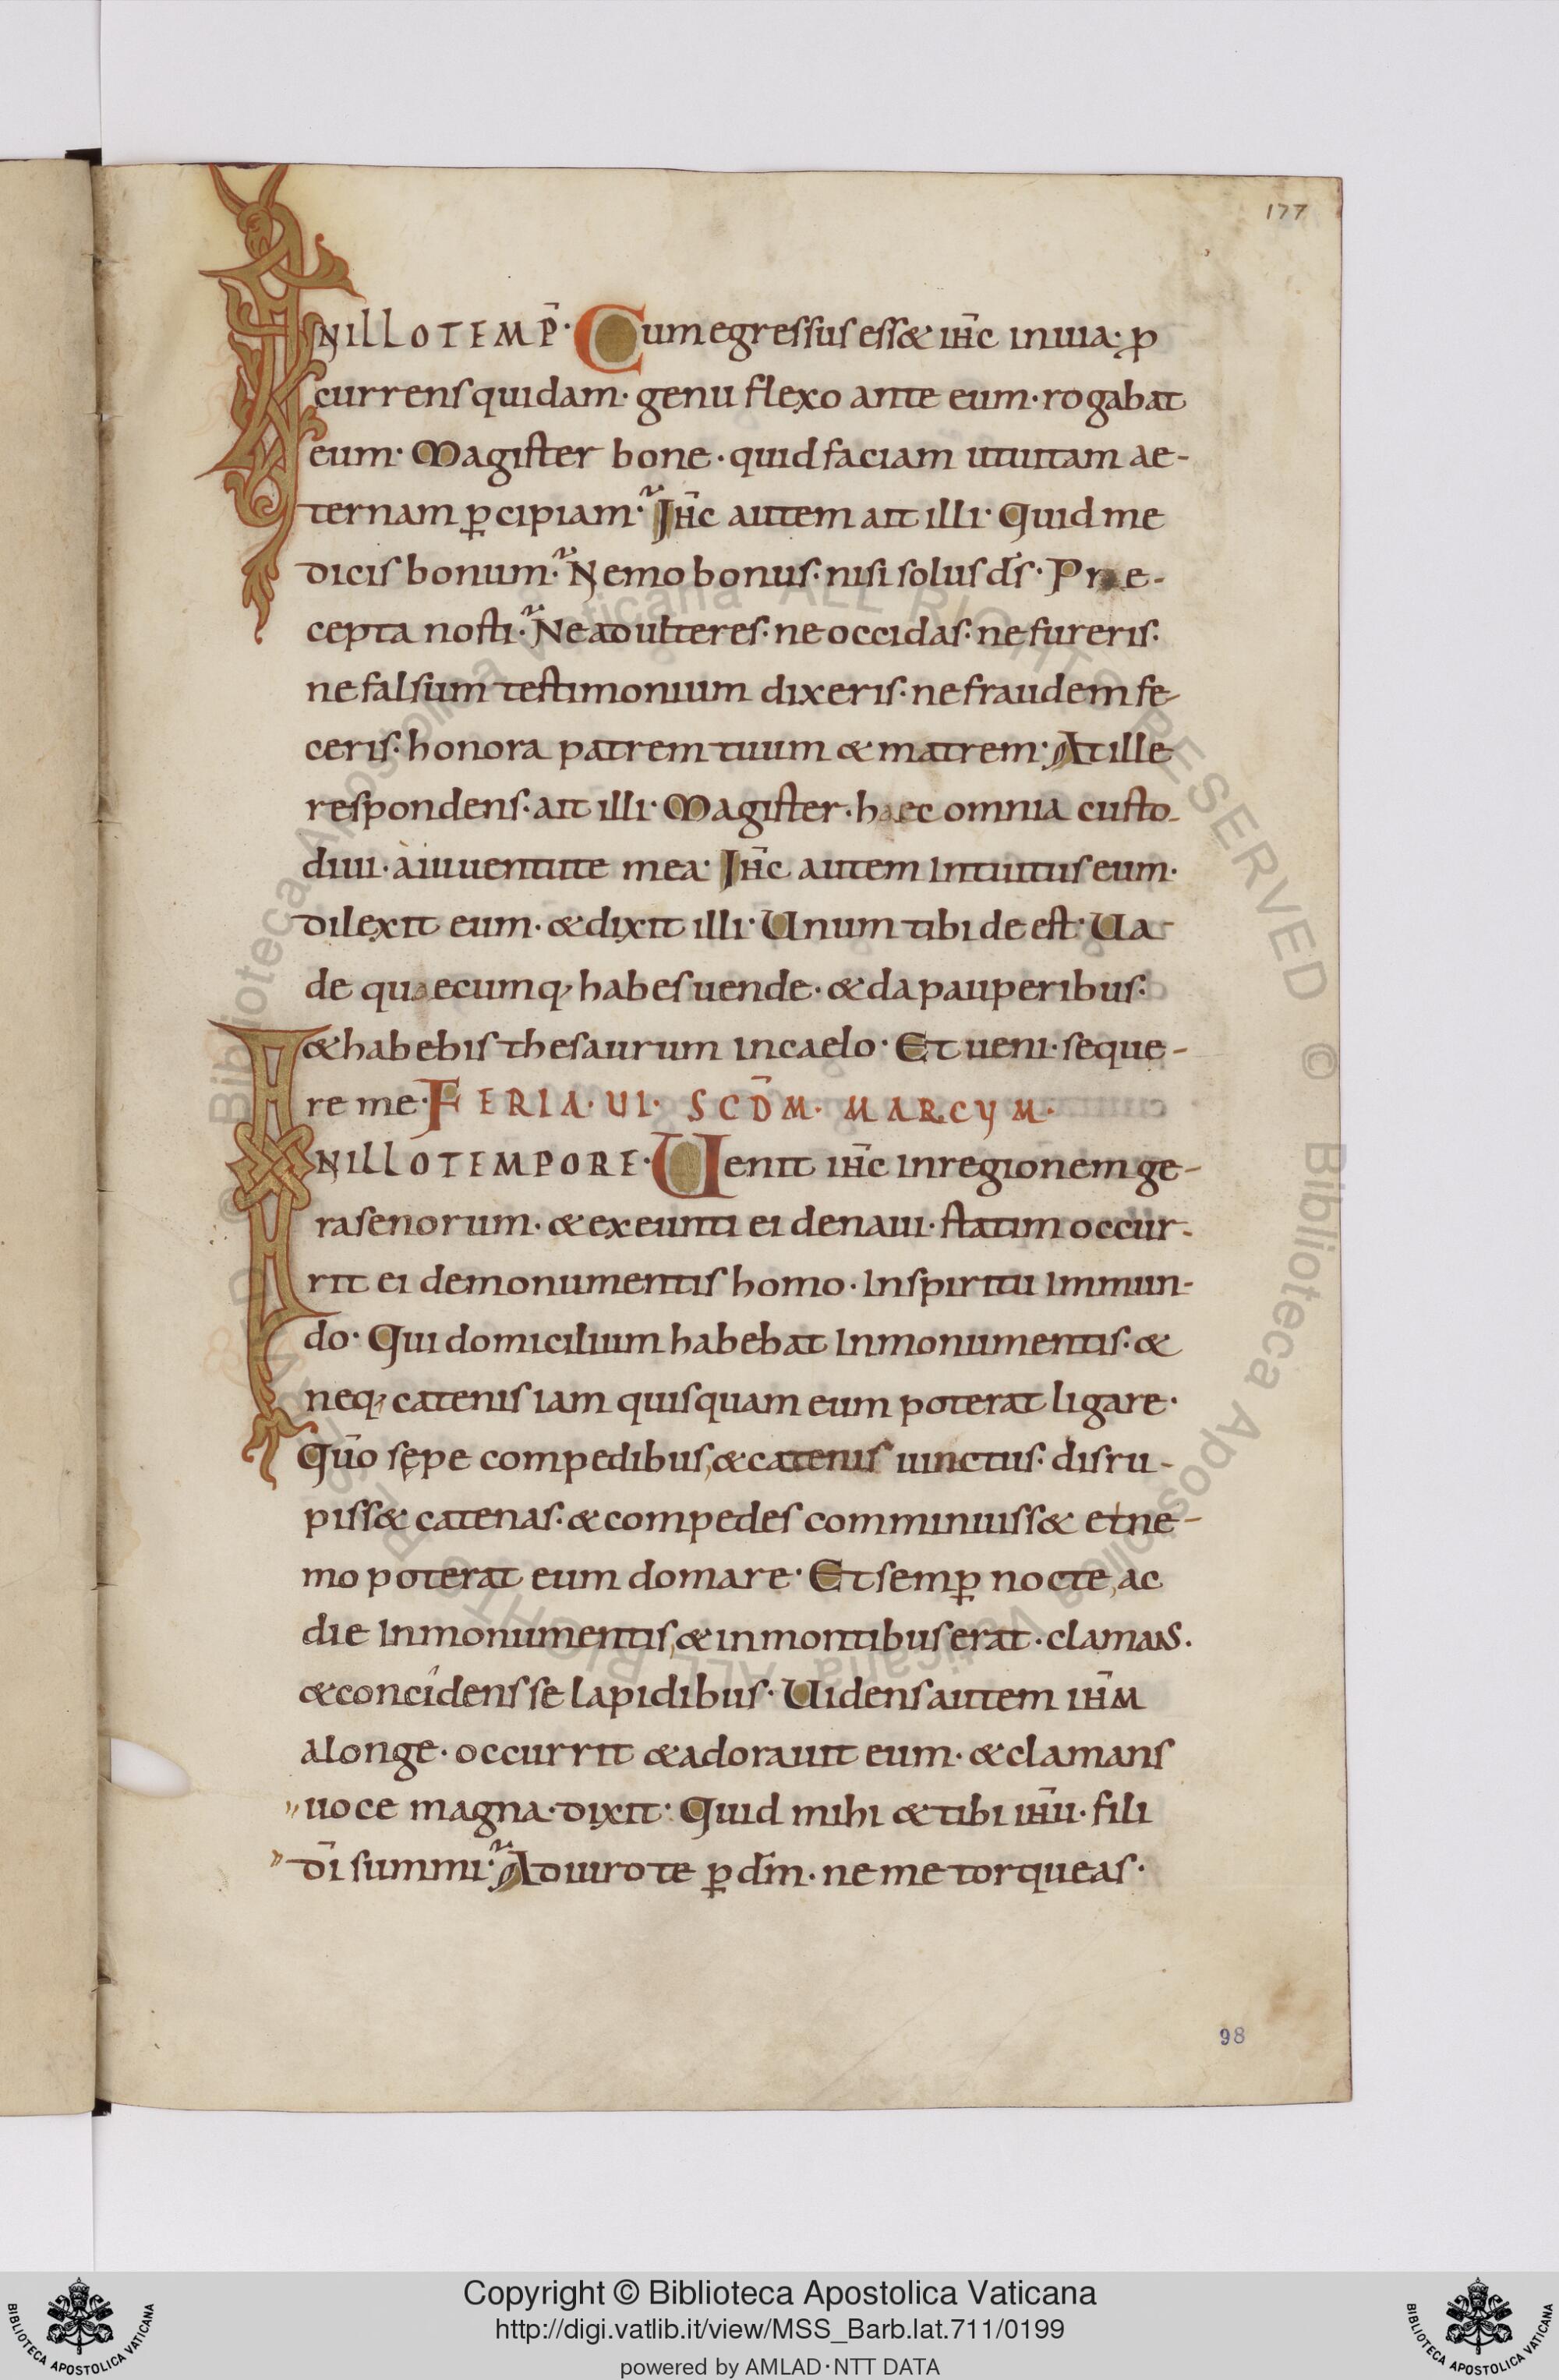 177
IN ILLO TEMP̄· Cum egressus esset ih̄c in uia· ꝓ
currens quidam· genu flexo ante eum· rogabat
eum· Magister bone· quid faciam ut uitam ae-
ternam ꝑcipiam· Ih̄c autem ait illi· Quid me
dicis bonum· Nemo bonus· nisi solus d̄s· Prae-
cepta nosti· Ne adulteres· ne occidas· ne fureris·
ne falsum testimonium dixeris· ne fraudem fe-
ceris· honora patrem tuum & matrem· At ille
respondens· ait illi· Magister· haec omnia custo-
diui· à iuuentute mea· Ih̄c autem intuitus eum·
dilexit eum· & dixit illi· Unum tibi de est· Ua-
de quaecumq; habes uende· & da pauperibus·
& habebis thesaurum in caelo· Et ueni· seque-
re me· FERIA· UI· SCD̄M· MARCUM·
IN ILLO TEMPORE· Uenit ih̄c in regionem ge-
rasenorum· & exeunti ei de naui· statim occur-
rit ei de monumentis homo· in spiritu immun-
do· Qui domicilium habebat in monumentis· &
neq; catenis iam quisquam eum poterat ligare·
Qūo sępe compedibus, & catenis uinctus· disru-
piss& catenas· & compedes comminuiss& et ne-
mo poterat eum domare· Et semꝑ nocte, ac
die in monumentis, & in montibus erat· clamans·
& concidens se lapidibus· Uidens autem ih̄m
a longe· occurrit & adorauit eum· & clamans
uoce magna· dixit· Quid mihi & tibi ih̄u· fili
d̄i summi· Adiuro te ꝑ d̄m· ne me torqueas·
98
© Biblioteca Apostolica Vaticana ALL RIGHTS RESERVED © Biblioteca Apostolica Vaticana ALL RIGHTS RESERVED
Copyright © Biblioteca Apostolica Vaticana
http://digi.vatlib.it/view/MSS_Barb.lat.711/0199
powered by AMLAD·NTT DATA
BIBLIOTECA APOSTOLICA VATICANA
BIBLIOTECA APOSTOLICA VATICANA